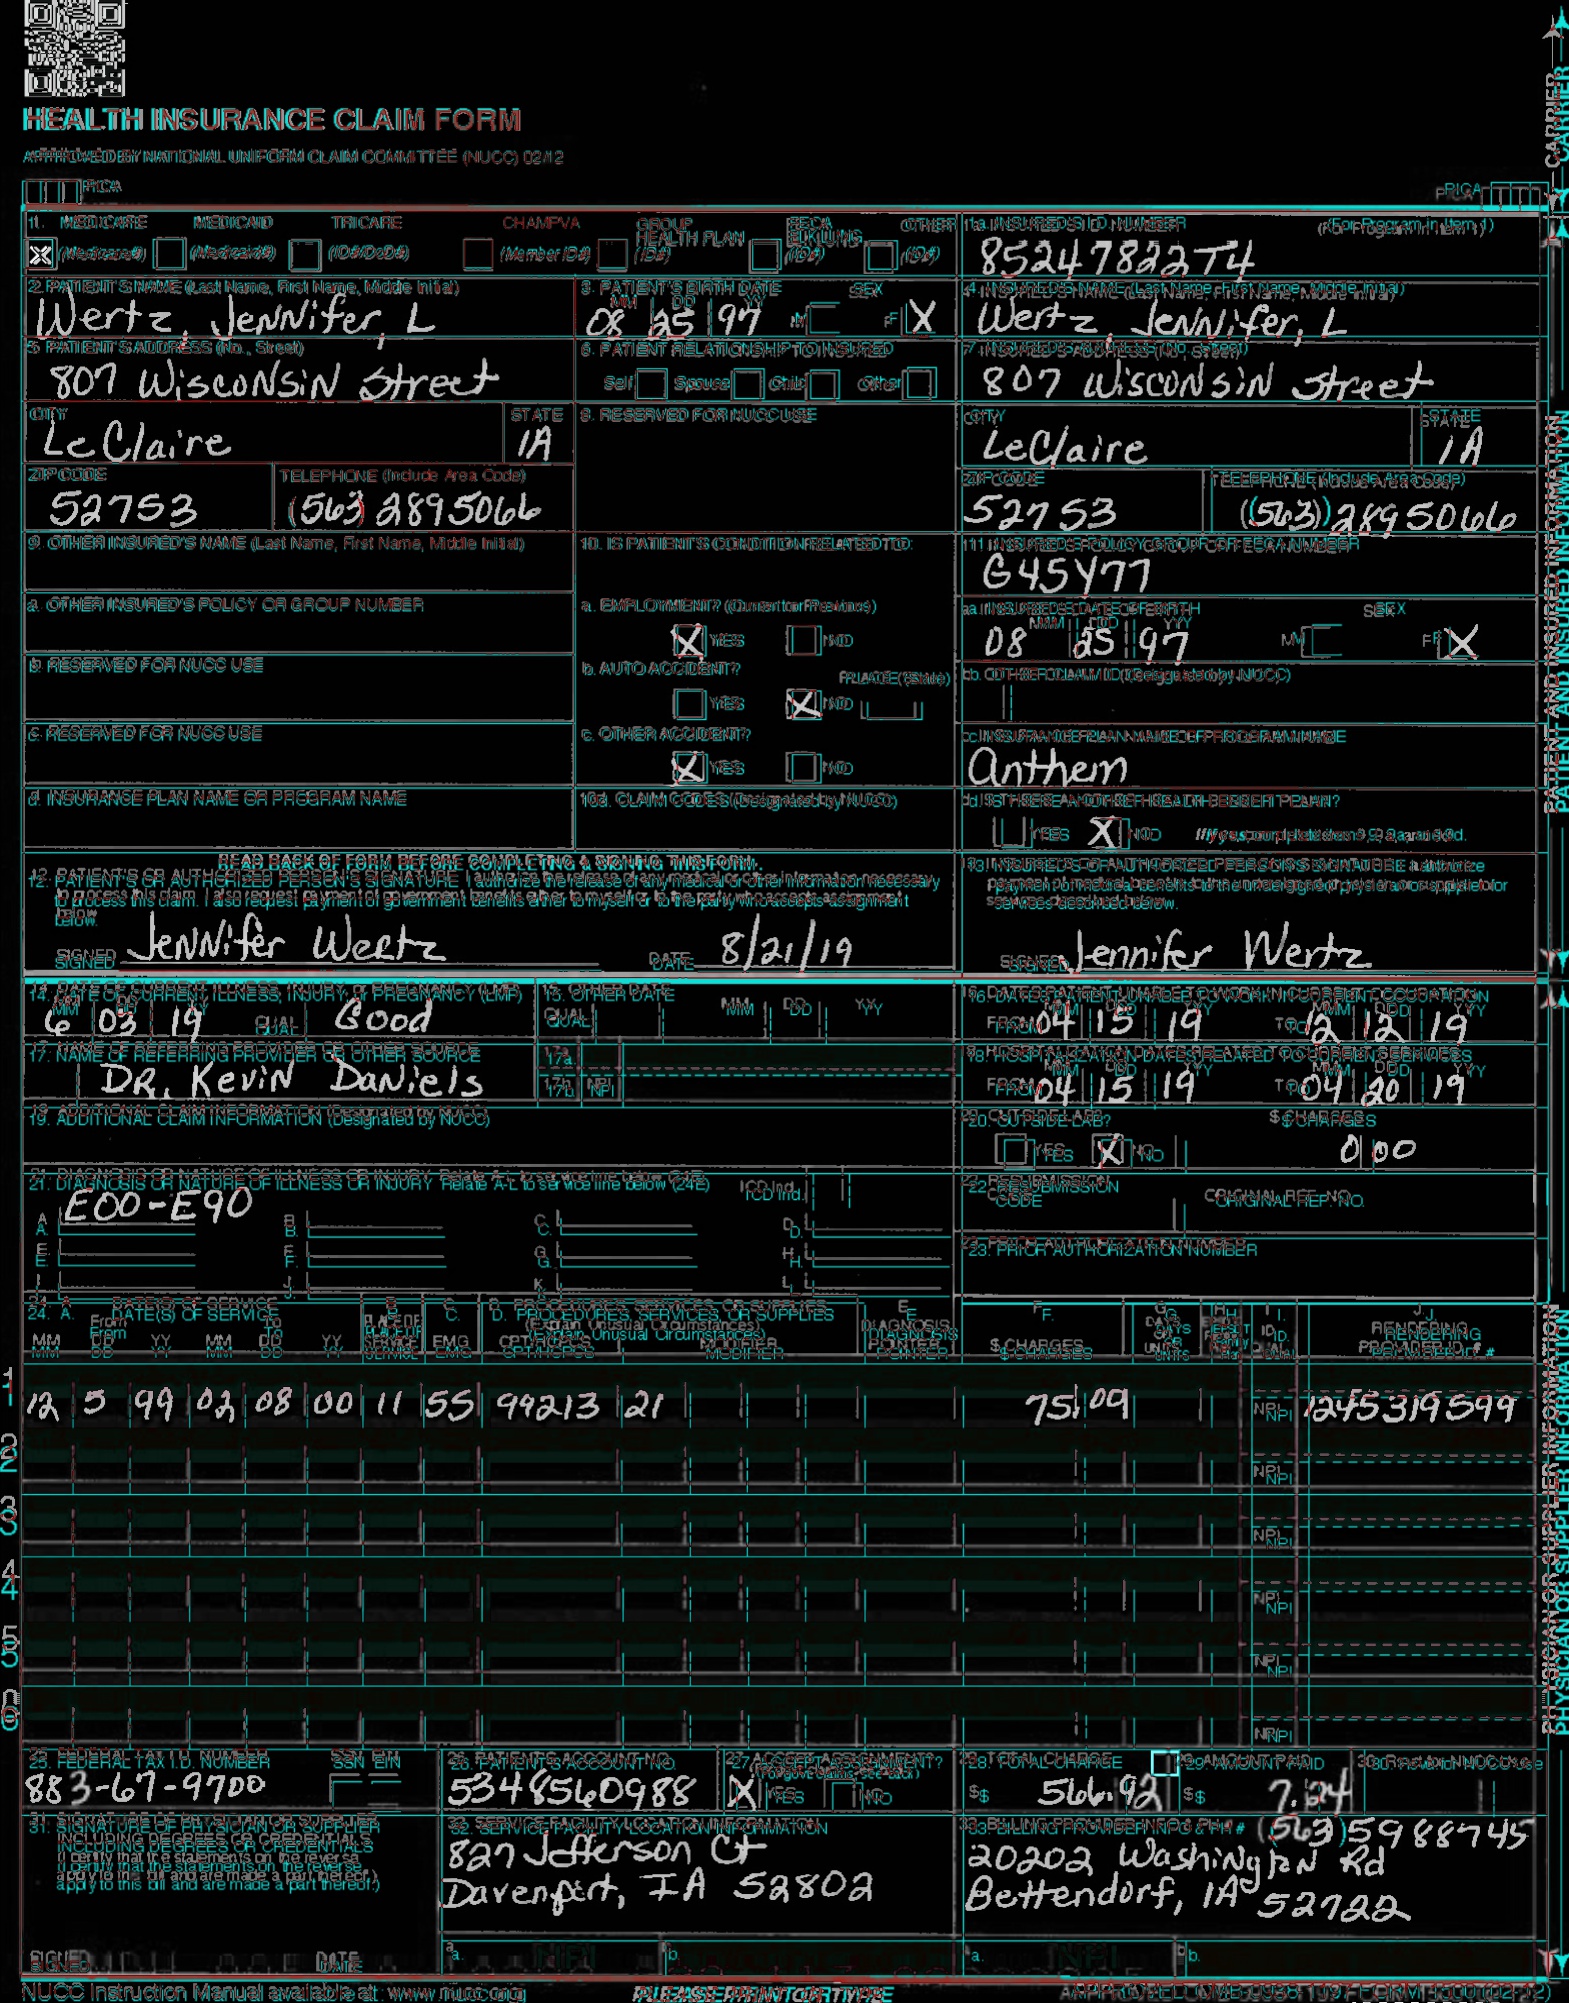 HEALTH INSURANCE CLAIM FORM
APPROVED BY NATIONAL UNIFORM CLAIM COMMITTEE (NUCC) 02/12
PICA
PICA
CARRIER
1. MEDICARE MEDICAID TRICARE CHAMPVA GROUP HEALTH PLAN FECA BLK LUNG OTHER
(Medicare#) (Medicaid#) (ID#/DoD#) (Member ID#) (ID#) (ID#) (ID#)
1a. INSURED'S I.D. NUMBER (For Program in Item 1)
85247822T4
2. PATIENT'S NAME (Last Name, First Name, Middle Initial)
Wertz, Jennifer, L
3. PATIENT'S BIRTH DATE SEX
MM DD YY
08 25 97 M F X
4. INSURED'S NAME (Last Name, First Name, Middle Initial)
Wertz, Jennifer, L
5. PATIENT'S ADDRESS (No., Street)
807 Wisconsin Street
6. PATIENT RELATIONSHIP TO INSURED
Self Spouse Child Other
7. INSURED'S ADDRESS (No., Street)
807 Wisconsin Street
CITY STATE
LeClaire IA
8. RESERVED FOR NUCC USE
CITY STATE
LeClaire IA
ZIP CODE TELEPHONE (Include Area Code)
52753 (563) 2895066
ZIP CODE TELEPHONE (Include Area Code)
52753 (563) 2895066
9. OTHER INSURED'S NAME (Last Name, First Name, Middle Initial)
10. IS PATIENT'S CONDITION RELATED TO:
11. INSURED'S POLICY GROUP OR FECA NUMBER
G45Y77
a. OTHER INSURED'S POLICY OR GROUP NUMBER
a. EMPLOYMENT? (Current or Previous)
X YES NO
a. INSURED'S DATE OF BIRTH SEX
MM DD YY
08 25 97 M F X
b. RESERVED FOR NUCC USE
b. AUTO ACCIDENT? PLACE (State)
YES X NO
b. OTHER CLAIM ID (Designated by NUCC)
c. RESERVED FOR NUCC USE
c. OTHER ACCIDENT?
X YES NO
c. INSURANCE PLAN NAME OR PROGRAM NAME
Anthem
d. INSURANCE PLAN NAME OR PROGRAM NAME
10d. CLAIM CODES (Designated by NUCC)
d. IS THERE ANOTHER HEALTH BENEFIT PLAN?
YES X NO If yes, complete items 9, 9a, and 9d.
PATIENT AND INSURED INFORMATION
READ BACK OF FORM BEFORE COMPLETING & SIGNING THIS FORM.
12. PATIENT'S OR AUTHORIZED PERSON'S SIGNATURE I authorize the release of any medical or other information necessary
to process this claim. I also request payment of government benefits either to myself or to the party who accepts assignment
below.
SIGNED Jennifer Wertz DATE 8/21/19
13. INSURED'S OR AUTHORIZED PERSON'S SIGNATURE I authorize
payment of medical benefits to the undersigned physician or supplier for
services described below.
SIGNED Jennifer Wertz
14. DATE OF CURRENT ILLNESS, INJURY, or PREGNANCY (LMP)
MM DD YY
6 03 19 QUAL. Good
15. OTHER DATE
QUAL. MM DD YY
16. DATES PATIENT UNABLE TO WORK IN CURRENT OCCUPATION
MM DD YY MM DD YY
FROM 04 15 19 TO 12 12 19
17. NAME OF REFERRING PROVIDER OR OTHER SOURCE
DR. Kevin Daniels
17a.
17b. NPI
18. HOSPITALIZATION DATES RELATED TO CURRENT SERVICES
MM DD YY MM DD YY
FROM 04 15 19 TO 04 20 19
19. ADDITIONAL CLAIM INFORMATION (Designated by NUCC)
20. OUTSIDE LAB? $ CHARGES
YES X NO 0 00
21. DIAGNOSIS OR NATURE OF ILLNESS OR INJURY Relate A-L to service line below (24E) ICD Ind.
A. E00-E90 B. C. D.
E. F. G. H.
I. J. K. L.
22. RESUBMISSION CODE ORIGINAL REF. NO.
23. PRIOR AUTHORIZATION NUMBER
24. A. DATE(S) OF SERVICE B. PLACE OF SERVICE C. EMG D. PROCEDURES, SERVICES, OR SUPPLIES E. DIAGNOSIS POINTER
From To (Explain Unusual Circumstances)
MM DD YY MM DD YY CPT/HCPCS MODIFIER
F. $ CHARGES G. DAYS OR UNITS H. I. ID. QUAL. J. RENDERING PROVIDER ID. #
1 12 5 99 02 08 00 11 SS 99213 21 75 09 NPI 1245319599
2 NPI
3 NPI
4 NPI
5 NPI
6 NPI
PHYSICIAN OR SUPPLIER INFORMATION
25. FEDERAL TAX I.D. NUMBER SSN EIN
883-67-9700
26. PATIENT'S ACCOUNT NO.
5348560988
27. ACCEPT ASSIGNMENT?
(For govt. claims, see back)
X YES NO
28. TOTAL CHARGE
$ 566.92
29. AMOUNT PAID
$ 7.64
30. Rsvd for NUCC Use
31. SIGNATURE OF PHYSICIAN OR SUPPLIER
INCLUDING DEGREES OR CREDENTIALS
(I certify that the statements on the reverse
apply to this bill and are made a part thereof.)
SIGNED DATE
32. SERVICE FACILITY LOCATION INFORMATION
827 Jefferson Ct
Davenport, IA 52802
a. NPI b.
33. BILLING PROVIDER INFO & PH # (563) 5988745
20202 Washington Rd
Bettendorf, IA 52722
a. NPI b.
NUCC Instruction Manual available at: www.nucc.org
PLEASE PRINT OR TYPE
APPROVED OMB-0938-1197 FORM 1500 (02-12)